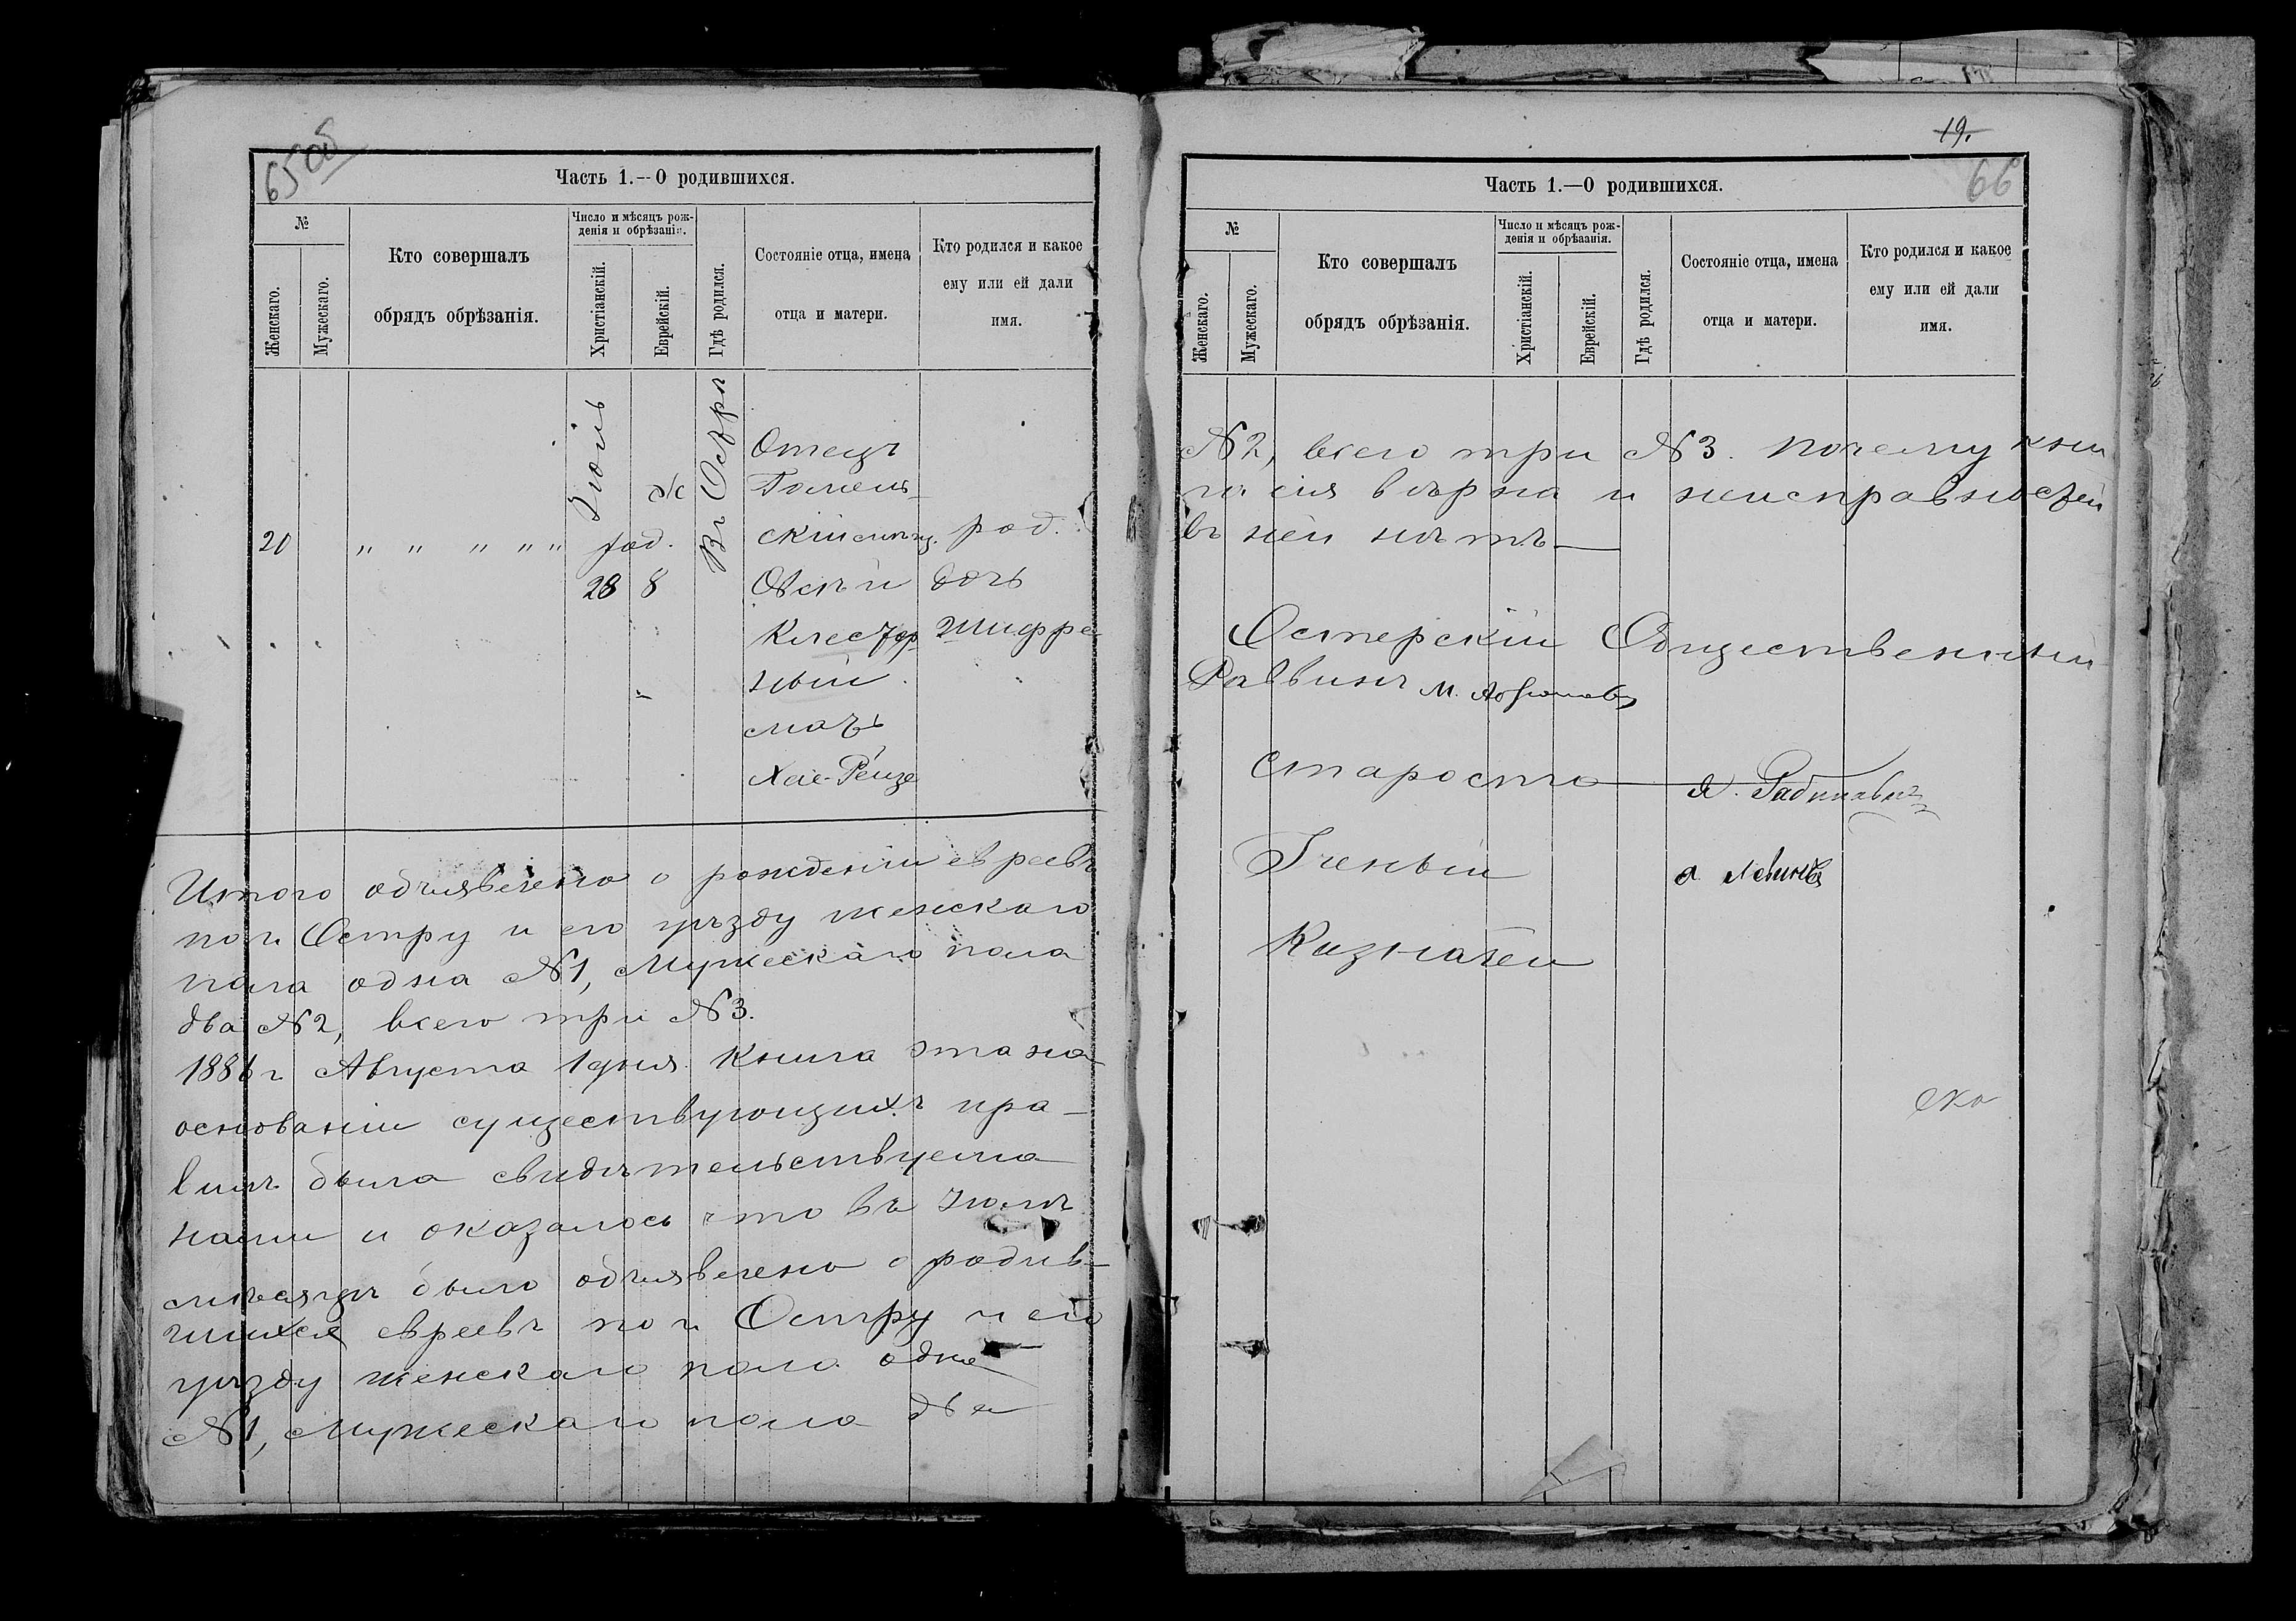 65об
Часть 1.—О родившихся.
№
Женскаго.
Мужескаго.
Кто совершалъ
обрядъ обрѣзанія.
Число и мѣсяцъ рож-
денія и обрѣзанія.
Христіанскій.
Еврейскій.
Гдѣ родился.
Состояніе отца, имена
отца и матери.
Кто родился и какое
ему или ей дали
имя.
Іюль
Въ Острѣ
Отецъ
Гомель-
20 " " " " " род. скій мѣщ. род.
28 8 Овсѣй дочь
Шифра
ный
мать
Хае-Рейзе
Итого объявлено о рожденіи евреевъ
по г. Остру и его уѣзду женскаго
пола одна №1, Мужескаго пола
два №2, всего три №3.
1886 г Августа 1 дня. Книга эта на
основаніи существующихъ пра-
вилъ была свидѣтельствуема
нами и оказалось что въ Іюлѣ
мѣсяцѣ было объявлено о родив-
шихся евреевъ по г. Остру и его
уѣзду женскаго пола одна
№1, Мужескаго пола два
19.
66
Часть 1.—О родившихся.
№
Женскаго.
Мужескаго.
Кто совершалъ
обрядъ обрѣзанія.
Число и мѣсяцъ рож-
денія и обрѣзанія.
Христіанскій.
Еврейскій.
Гдѣ родился.
Состояніе отца, имена
отца и матери.
Кто родился и какое
ему или ей дали
имя.
№2, всего три №3. почему кни
га сія вѣрна и неисправностей
въ ней нѣтъ
Остерскій Общественный
Раввинъ М.
Староста Я. Рабиновичъ
Ученый
Казначей